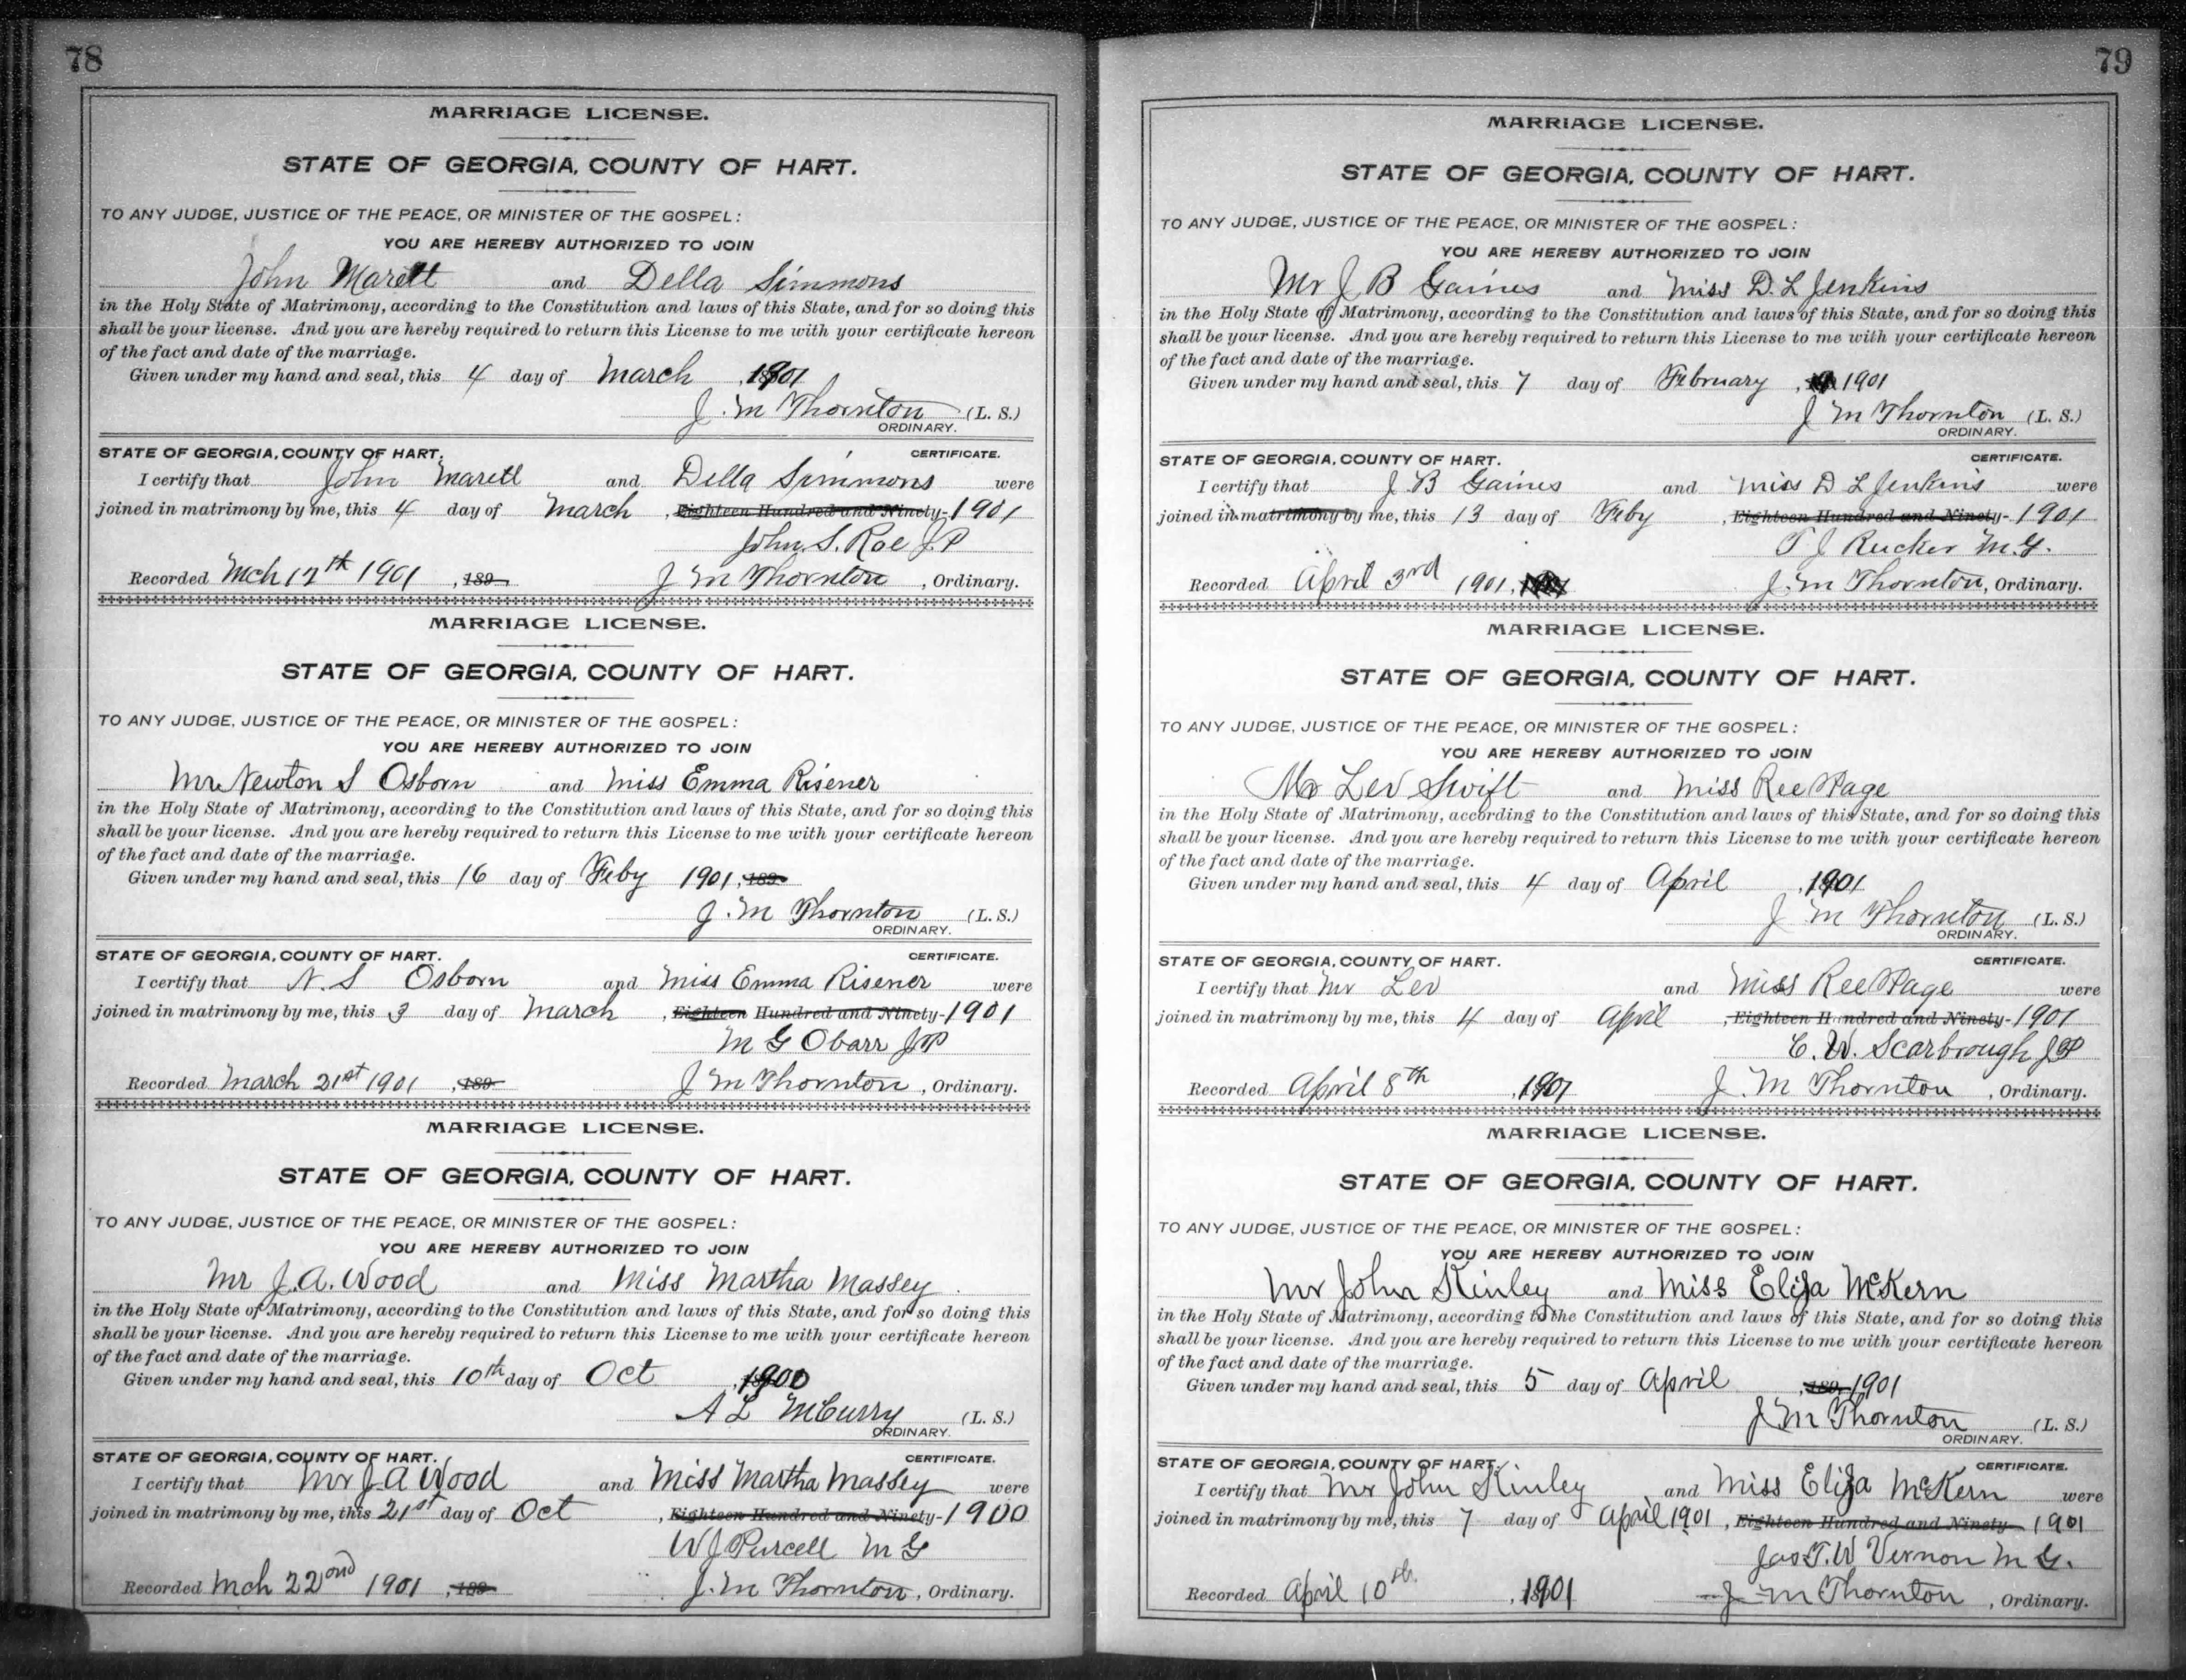 78
MARRIAGE LICENSE.
STATE OF GEORGIA, COUNTY OF HART.
TO ANY JUDGE, JUSTICE OF THE PEACE, OR MINISTER OF THE GOSPEL:
YOU ARE HEREBY AUTHORIZED TO JOIN
John Marett and Della Simmons
in the Holy State of Matrimony, according to the Constitution and laws of this State, and for so doing this
shall be your license. And you are hereby required to return this License to me with your certificate hereon
of the fact and date of the marriage.
Given under my hand and seal, this 4 day of March, 1901
J. M Thornton (L. S.)
ORDINARY.
STATE OF GEORGIA, COUNTY OF HART. CERTIFICATE.
I certify that John Marett and Della Simmons were
joined in matrimony by me, this 4 day of March, Eighteen Hundred and Ninety-1901
John. S. Roe J.P
Recorded Mch 12th 1901, 189 J M Thornton, Ordinary.
MARRIAGE LICENSE.
STATE OF GEORGIA, COUNTY OF HART.
TO ANY JUDGE, JUSTICE OF THE PEACE, OR MINISTER OF THE GOSPEL:
YOU ARE HEREBY AUTHORIZED TO JOIN
Mr Newton S Osborn and Miss Emma Risener
in the Holy State of Matrimony, according to the Constitution and laws of this State, and for so doing this
shall be your license. And you are hereby required to return this License to me with your certificate hereon
of the fact and date of the marriage.
Given under my hand and seal, this 16 day of Feby 1901, 189
J. M Thornton (L. S.)
ORDINARY.
STATE OF GEORGIA, COUNTY OF HART. CERTIFICATE.
I certify that N. S Osborn and Miss Emma Risener were
joined in matrimony by me, this 3 day of March, Eighteen Hundred and Ninety-1901
M G Obarr JP
Recorded March 21st 1901, 189 J M Thornton, Ordinary.
MARRIAGE LICENSE.
STATE OF GEORGIA, COUNTY OF HART.
TO ANY JUDGE, JUSTICE OF THE PEACE, OR MINISTER OF THE GOSPEL:
YOU ARE HEREBY AUTHORIZED TO JOIN
Mr J. A. Wood and Miss Martha Massey
in the Holy State of Matrimony, according to the Constitution and laws of this State, and for so doing this
shall be your license. And you are hereby required to return this License to me with your certificate hereon
of the fact and date of the marriage.
Given under my hand and seal, this 10th day of Oct, 1900
A L McCurry (L. S.)
ORDINARY.
STATE OF GEORGIA, COUNTY OF HART. CERTIFICATE.
I certify that Mr J A Wood and Miss Martha Massey were
joined in matrimony by me, this 21st day of Oct, Eighteen Hundred and Ninety-1900
W J Purcell M G
Recorded Mch 22nd 1901, 189 J. M Thornton, Ordinary.
79
MARRIAGE LICENSE.
STATE OF GEORGIA, COUNTY OF HART.
TO ANY JUDGE, JUSTICE OF THE PEACE, OR MINISTER OF THE GOSPEL:
YOU ARE HEREBY AUTHORIZED TO JOIN
Mr J B Gaines and Miss D. L Jenkins
in the Holy State of Matrimony, according to the Constitution and laws of this State, and for so doing this
shall be your license. And you are hereby required to return this License to me with your certificate hereon
of the fact and date of the marriage.
Given under my hand and seal, this 7 day of February, 1901
J M Thornton (L. S.)
ORDINARY.
STATE OF GEORGIA, COUNTY OF HART. CERTIFICATE.
I certify that J B Gaines and Miss D L Jenkins were
joined in matrimony by me, this 13 day of Feby, Eighteen Hundred and Ninety-1901
T J Rucker M. G.
Recorded April 3rd 1901, J. M Thornton, Ordinary.
MARRIAGE LICENSE.
STATE OF GEORGIA, COUNTY OF HART.
TO ANY JUDGE, JUSTICE OF THE PEACE, OR MINISTER OF THE GOSPEL:
YOU ARE HEREBY AUTHORIZED TO JOIN
Mr Lev Swift and Miss Ree Page
in the Holy State of Matrimony, according to the Constitution and laws of this State, and for so doing this
shall be your license. And you are hereby required to return this License to me with your certificate hereon
of the fact and date of the marriage.
Given under my hand and seal, this 4 day of April, 1901
J M Thornton (L. S.)
ORDINARY.
STATE OF GEORGIA, COUNTY OF HART. CERTIFICATE.
I certify that Mr Lev and Miss Ree Page were
joined in matrimony by me, this 4 day of April, Eighteen Hundred and Ninety-1901
C. W. Scarbrough JP
Recorded April 8th, 1901 J. M Thornton, Ordinary.
MARRIAGE LICENSE.
STATE OF GEORGIA, COUNTY OF HART.
TO ANY JUDGE, JUSTICE OF THE PEACE, OR MINISTER OF THE GOSPEL:
YOU ARE HEREBY AUTHORIZED TO JOIN
Mr John Kinley and Miss Eliza McKern
in the Holy State of Matrimony, according to the Constitution and laws of this State, and for so doing this
shall be your license. And you are hereby required to return this License to me with your certificate hereon
of the fact and date of the marriage.
Given under my hand and seal, this 5 day of April, 189 1901
J M Thornton (L. S.)
ORDINARY.
STATE OF GEORGIA, COUNTY OF HART. CERTIFICATE.
I certify that Mr John Kinley and Miss Eliza McKern were
joined in matrimony by me, this 7 day of April 1901, Eighteen Hundred and Ninety- 1901
Jas T. W Vernon M G.
Recorded April 10th, 1901 J M Thornton, Ordinary.